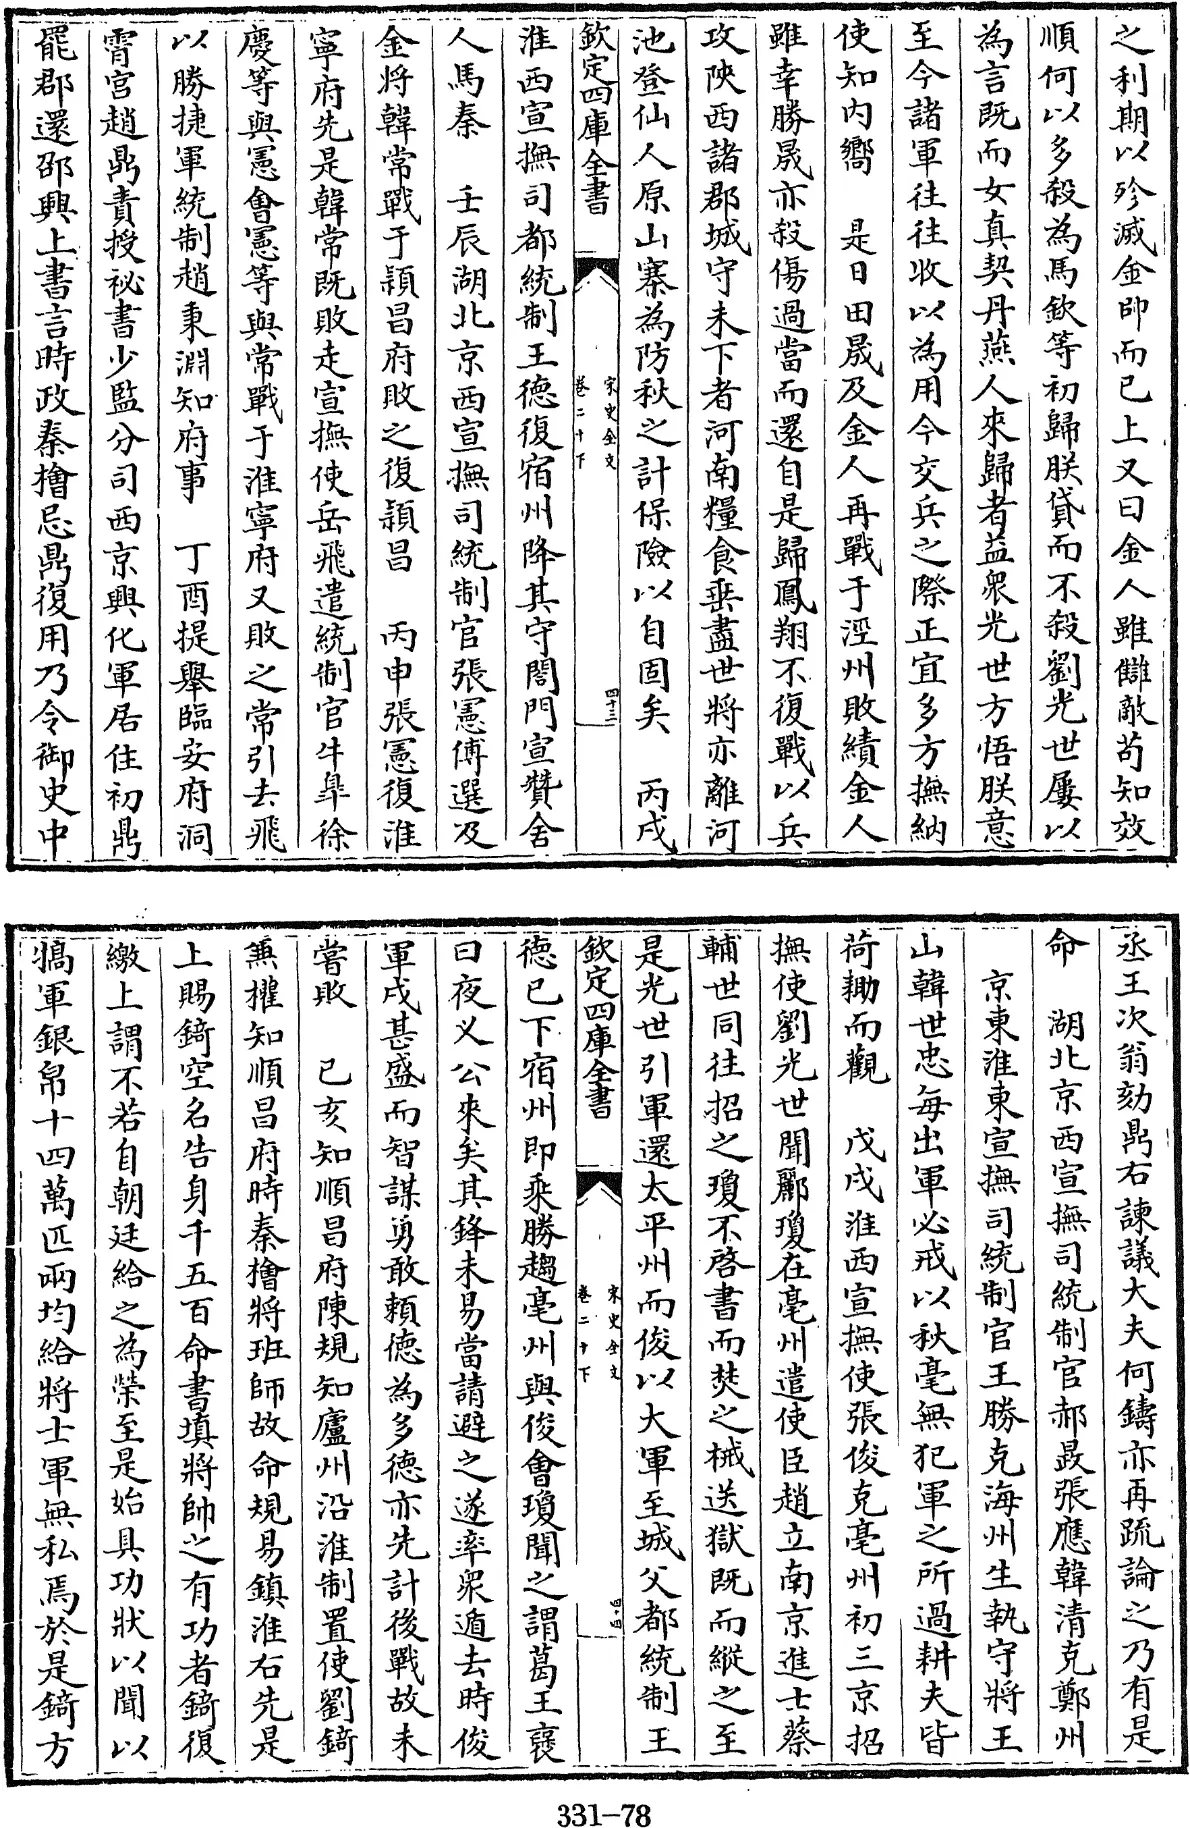 之利期以殄滅金帥而已上又曰金人雖讎敵苟知效
順何以多殺為馬欽等初歸朕貸而不殺劉光世屢以
為言既而女真契丹燕人來歸者益衆光世方悟朕意
至今諸軍往往收以為用今交兵之際正宜多方撫納
使知内嚮　是日田晟及金人再戰于涇州敗績金人
雖幸勝晟亦殺傷過當而還自是歸鳳翔不復戰以兵
攻陜西諸郡城守未下者河南糧食垂盡世將亦離河
池登仙人原山寨為防秋之計保險以自固矣　丙戌
欽定四庫全書
宋史全文
卷二十下
四十三
淮西宣撫司都統制王德復宿州降其守閤門宣贊舍
人馬秦　壬辰湖北京西宣撫司統制官張憲傅選及
金将韓常戰于頴昌府敗之復頴昌　丙申張憲復淮
寧府先是韓常既敗走宣撫使岳飛遣統制官牛臯徐
慶等與憲會憲等與常戰于淮寧府又敗之常引去飛
以勝捷軍統制趙秉淵知府事　丁酉提舉臨安府洞
霄宫趙鼎責授祕書少監分司西京興化軍居住初鼎
罷郡還邵興上書言時政秦檜忌鼎復用乃令御史中
丞王次翁劾鼎右諫議大夫何鑄亦再疏論之乃有是
命　湖北京西宣撫司統制官郝晸張應韓清克鄭州
京東淮東宣撫司統制官王勝克海州生執守將王
山韓世忠每出軍必戒以秋毫無犯軍之所過耕夫皆
荷鋤而觀　戊戌淮西宣撫使張俊克亳州初三京招
撫使劉光世聞酈瓊在亳州遣使臣趙立南京進士蔡
輔世同往招之瓊不啓書而焚之械送獄既而縱之至
是光世引軍還太平州而俊以大軍至城父都統制王
欽定四庫全書
宋史全文
卷二十下
四十四
德已下宿州即乘勝趨亳州與俊會瓊聞之謂葛王褎
曰夜义公來矣其鋒未易當請避之遂率衆遁去時俊
軍戍甚盛而智謀勇敢頼德為多德亦先計後戰故未
嘗敗　己亥知順昌府陳規知廬州沿淮制置使劉錡
兼權知順昌府時秦檜將班師故命規易鎮淮右先是
上賜錡空名告身千五百命書填將帥之有功者錡復
繳上謂不若自朝廷給之為榮至是始具功狀以聞以
犒軍銀帛十四萬匹兩均給將士軍無私焉於是錡方
331-78